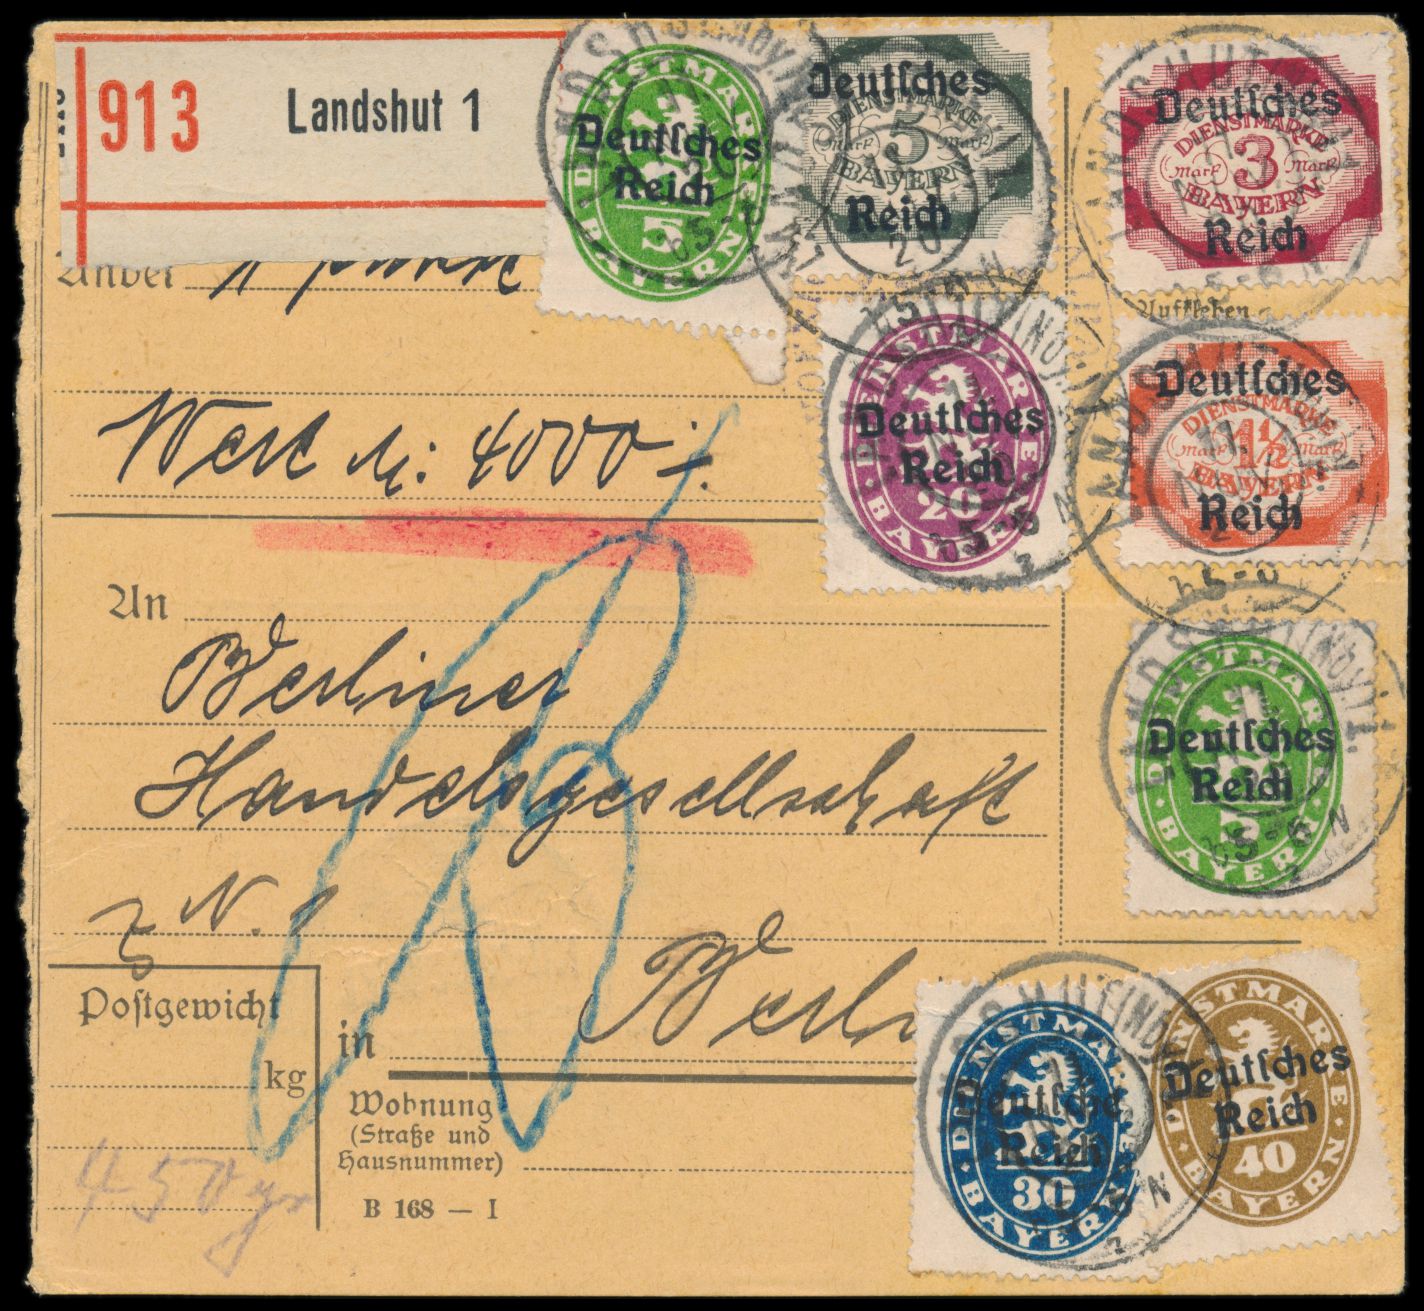 913
Landshut 1
Anbei
Wert M: 4000.-
Aufkleben
An
Berliner
Handelsgesellschaft
Postgewicht
kg
450 gr
in
Wohnung
(Straße und
Hausnummer)
B 168 — I
DIENSTMARKE
Deutsches
Reich
5
BAYERN
Deutsches
DIENSTMARKE
Mark 5 Mark
BAYERN
Reich
20
Deutsches
DIENSTMARKE
Mark 3 Mark
BAYERN
Reich
DIENSTMARKE
Deutsches
Reich
20
BAYERN
Deutsches
DIENSTMARKE
Mark 1½ Mark
BAYERN
Reich
DIENSTMARKE
Deutsches
Reich
5
BAYERN
DIENSTMARKE
Deutsches
Reich
30
BAYERN
DIENSTMARKE
Deutsches
Reich
40
BAYERN
LANDSHUT
5-6 N